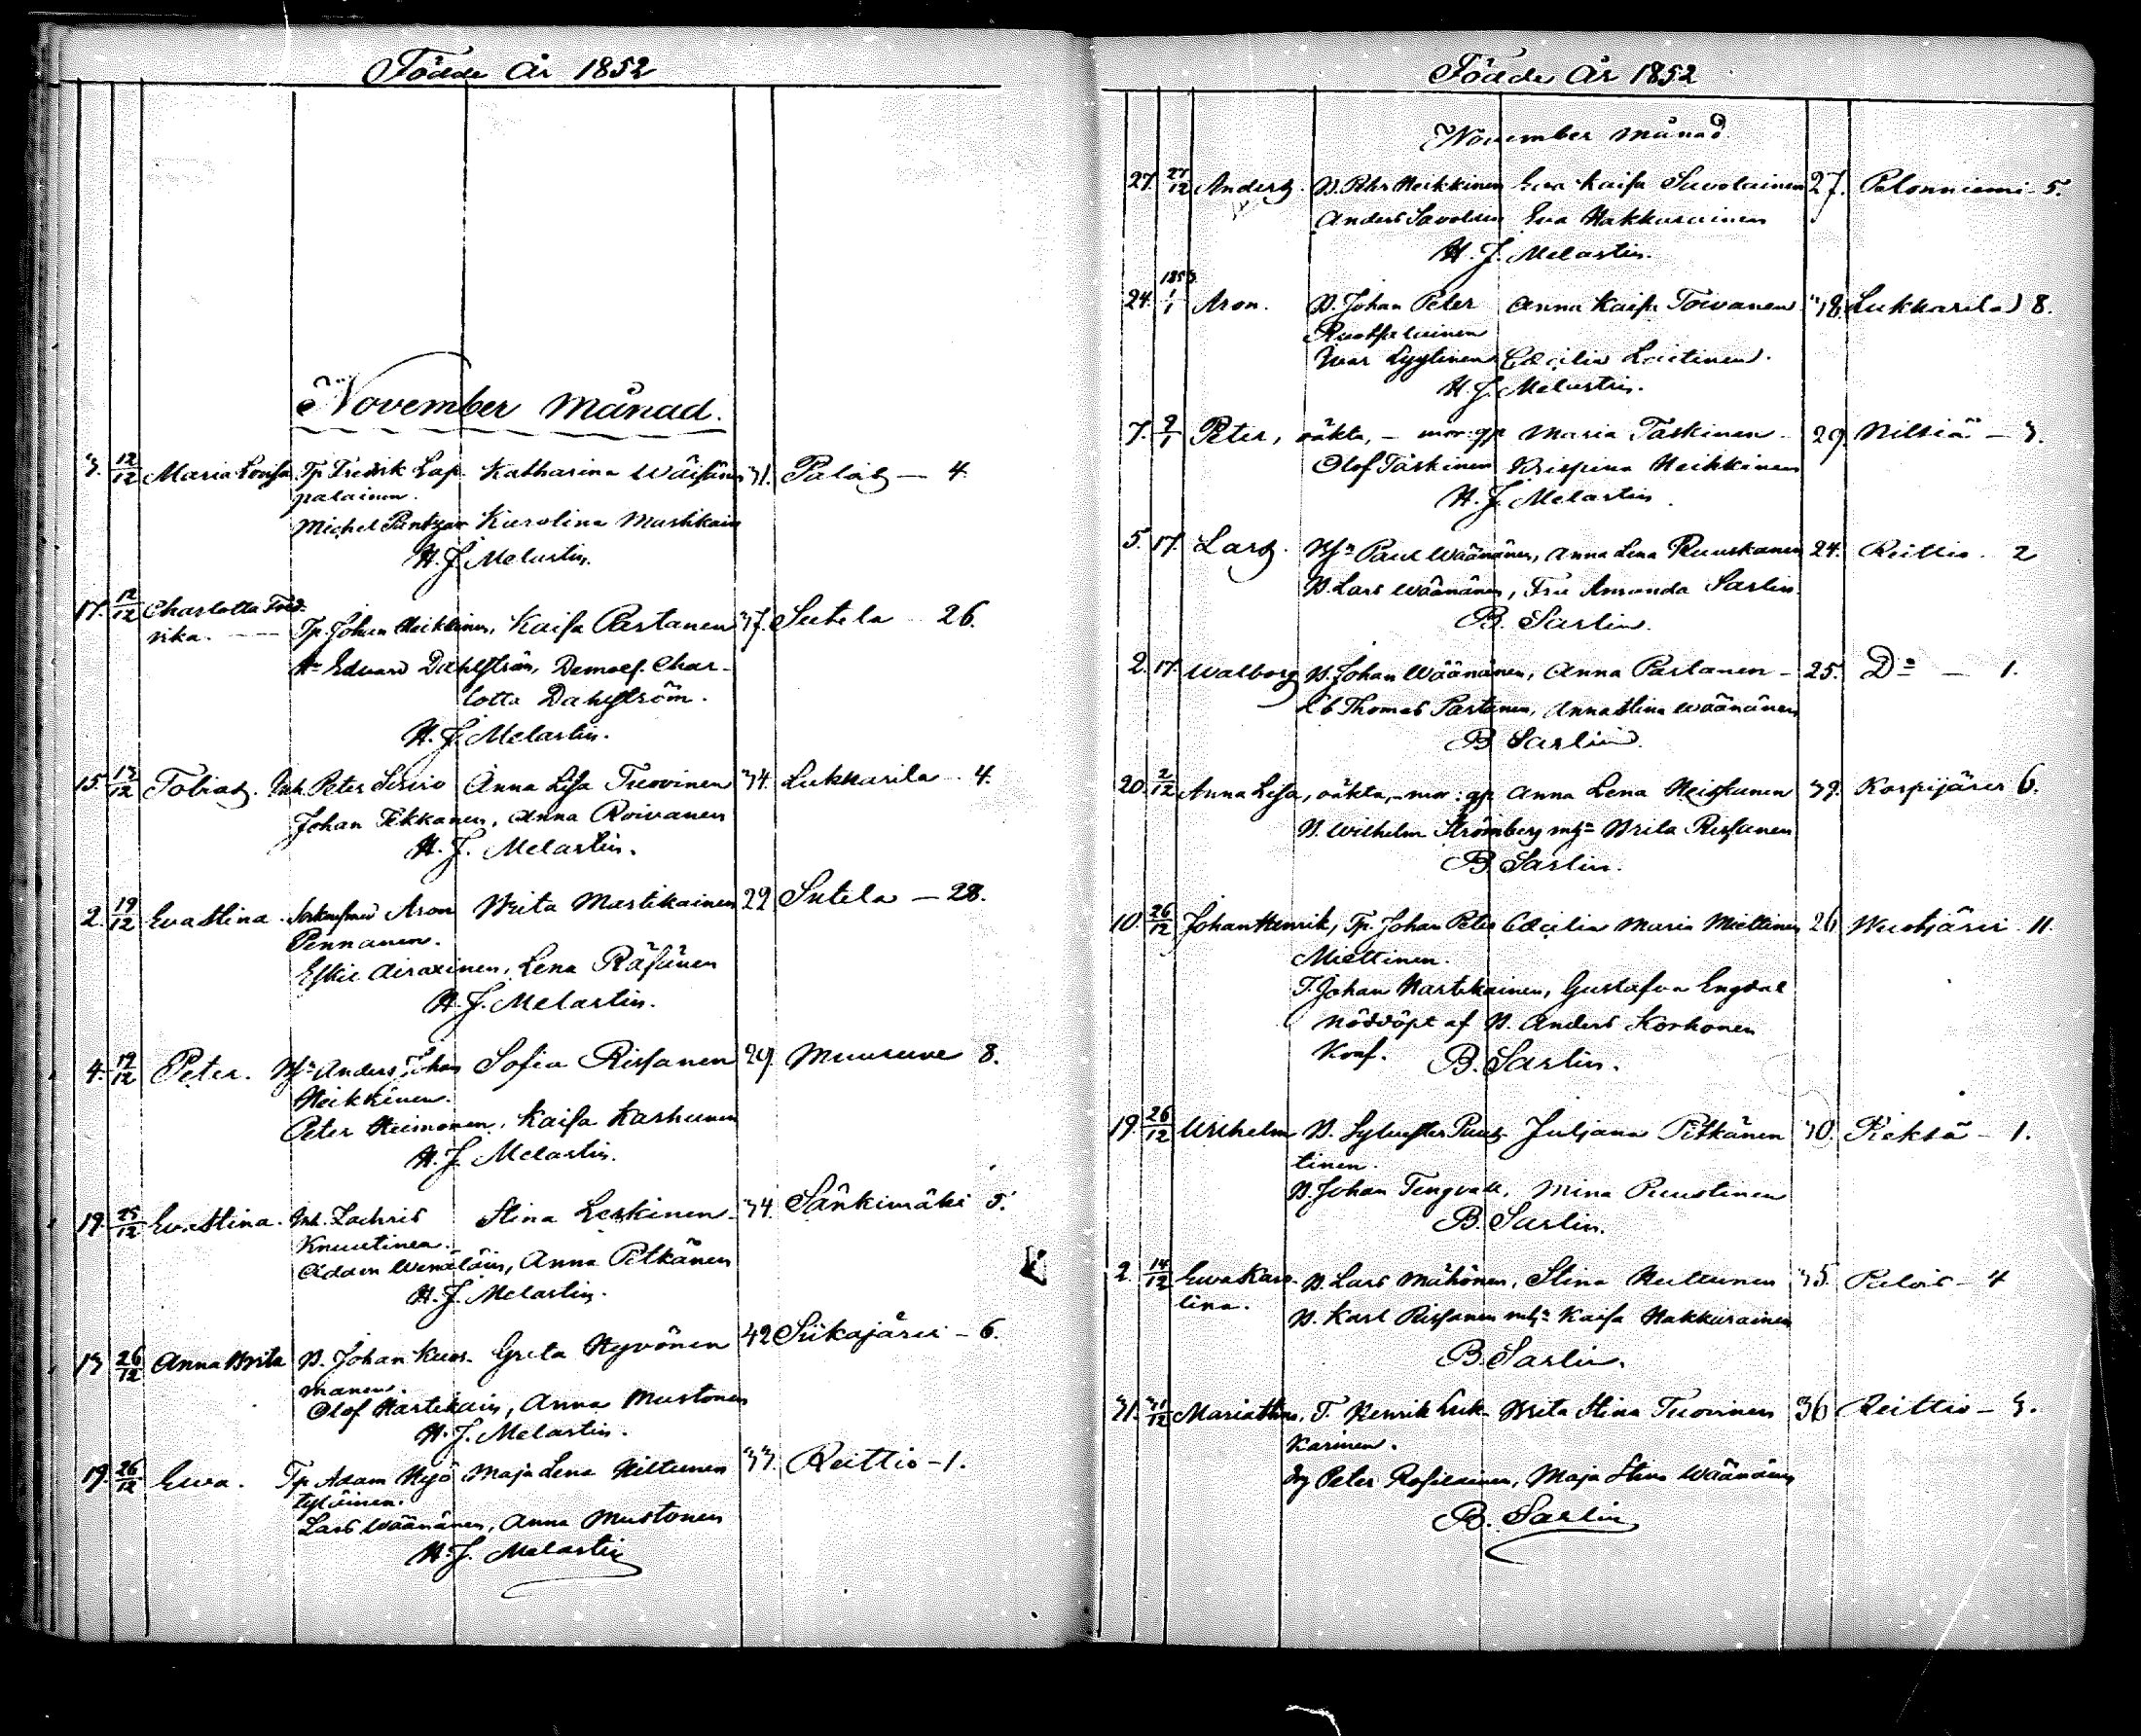 Födde År 1852
November månad.
3. 12/12 Maria Lovisa Tp Fredrik Lap- Katharina Wäisänen 31. Palois — 4.
palainen.
Michel Pantzar Karolina Martikain
H. J. Melartin.
17. 12/12 Charlotta Fred-
rika. — Tp. Johan Heikkinen, Kaisa Partanen 37. Sutela 26.
Hr Edvard Dahlström, Demoes. Char-
lotta Dahlström.
H. J. Melartin.
15. 13/12 Tobias. Inh. Peter Sirviö Anna Lisa Tuovinen 34. Lukkarila 4.
Johan Tikkanen, Anna Roivanen
H. J. Melartin.
2. 19/12 Eva Stina. Aron Brita Martikainen 29 Sutela — 28.
Pennanen.
Eskil Airaxinen, Lena Räsänen
H. J. Melartin.
4. 19/12 Peter. Bsn Anders Johan Sofia Rissanen 29. Muuruve 8.
Heikkinen.
Peter Heimonen, Kaisa Karhunen
H. J. Melartin.
19. 25/12 Eva Stina. Inh. Zachris Stina Leskinen 34. Sänkimäki 5.
Knuutinen.
Adam Wenäläin, Anna Pitkänen
H. J. Melartin.
13 26/12 Anna Brita B. Johan Kuos- Greta Hyvönen 42 Siikajärvi — 6.
manen.
Olof Hartikain, Anna Mustonen
H. J. Melartin.
19. 26/12 Ewa. Tp Adam Hyö Maja Lena Hiltunen 33. Reittio — 1.
tyläinen.
Lars Wäänänen, Anna Mustonen
H. J. Melartin
Födde År 1852
November månad
27. 27/12 Anders. B. Pehr Heikkinen Eva Kaisa Savolainen 27. Palonniemi 5.
Anders Savolain Eva Hakkarainen
H. J. Melartin.
1853
24. 1/1 Aron. B. Johan Peter Anna Kaisa Toivanen 38. Lukkarila 8.
Ruotsalainen
Ivar Lyytinen Cecilia Laitinen.
H. J. Melartin.
7. 9/1 Peter, oäkta, — mor: gp Maria Taskinen 29. Nilsiä — 3.
Olof Taskinen Krispina Heikkinen
H. J. Melartin
5. 17. Lars. Bsn Paul Wäänänen, Anna Lena Ruuskanen 24. Reittio 2
B. Lars Wäänänen, Fru Amanda Sarlin
B. Sarlin.
2. 17. Walborg B. Johan Wäänänen, Anna Partanen — 25. Do — 1.
Thomas Partanen, Anna Stina Wäänänen
B. Sarlin
20. 2/12 Anna Lisa, oäkta, — mor: gp Anna Lena Heiskanen 39. Korpijärvi 6.
B. Wilhelm Strömberg mhn Brita Rissanen
B. Sarlin.
10. 26/12 Johan Henrik, Tp. Johan Peter Cecilia Maria Miettinen 26 Wuotjärvi 11.
Miettinen.
T. Johan Hartikainen, Gustafva Engdal
Nöddöpt af B. Anders Korhonen
Konf. B. Sarlin.
19. 26/12 Wilhelm B. Sylvester Puus- Juljana Pitkänen 30. Kieksä — 1.
tinen.
B. Johan Tengvall, Mina Puustinen
B. Sarlin.
2. 14/12 Ewa Karo- B. Lars Mähönen, Stina Huttunen 35. Palois — 4
lina. B. Karl Rissanen mhn Kaisa Hakkarainen
B. Sarlin.
31. 31/12 Maria Stina, T. Henrik Luk- Brita Stina Tuovinen 36 Reittio — 3.
karinen.
Peter Rosilainen, Maja Stina Wäänänen
B. Sarlin